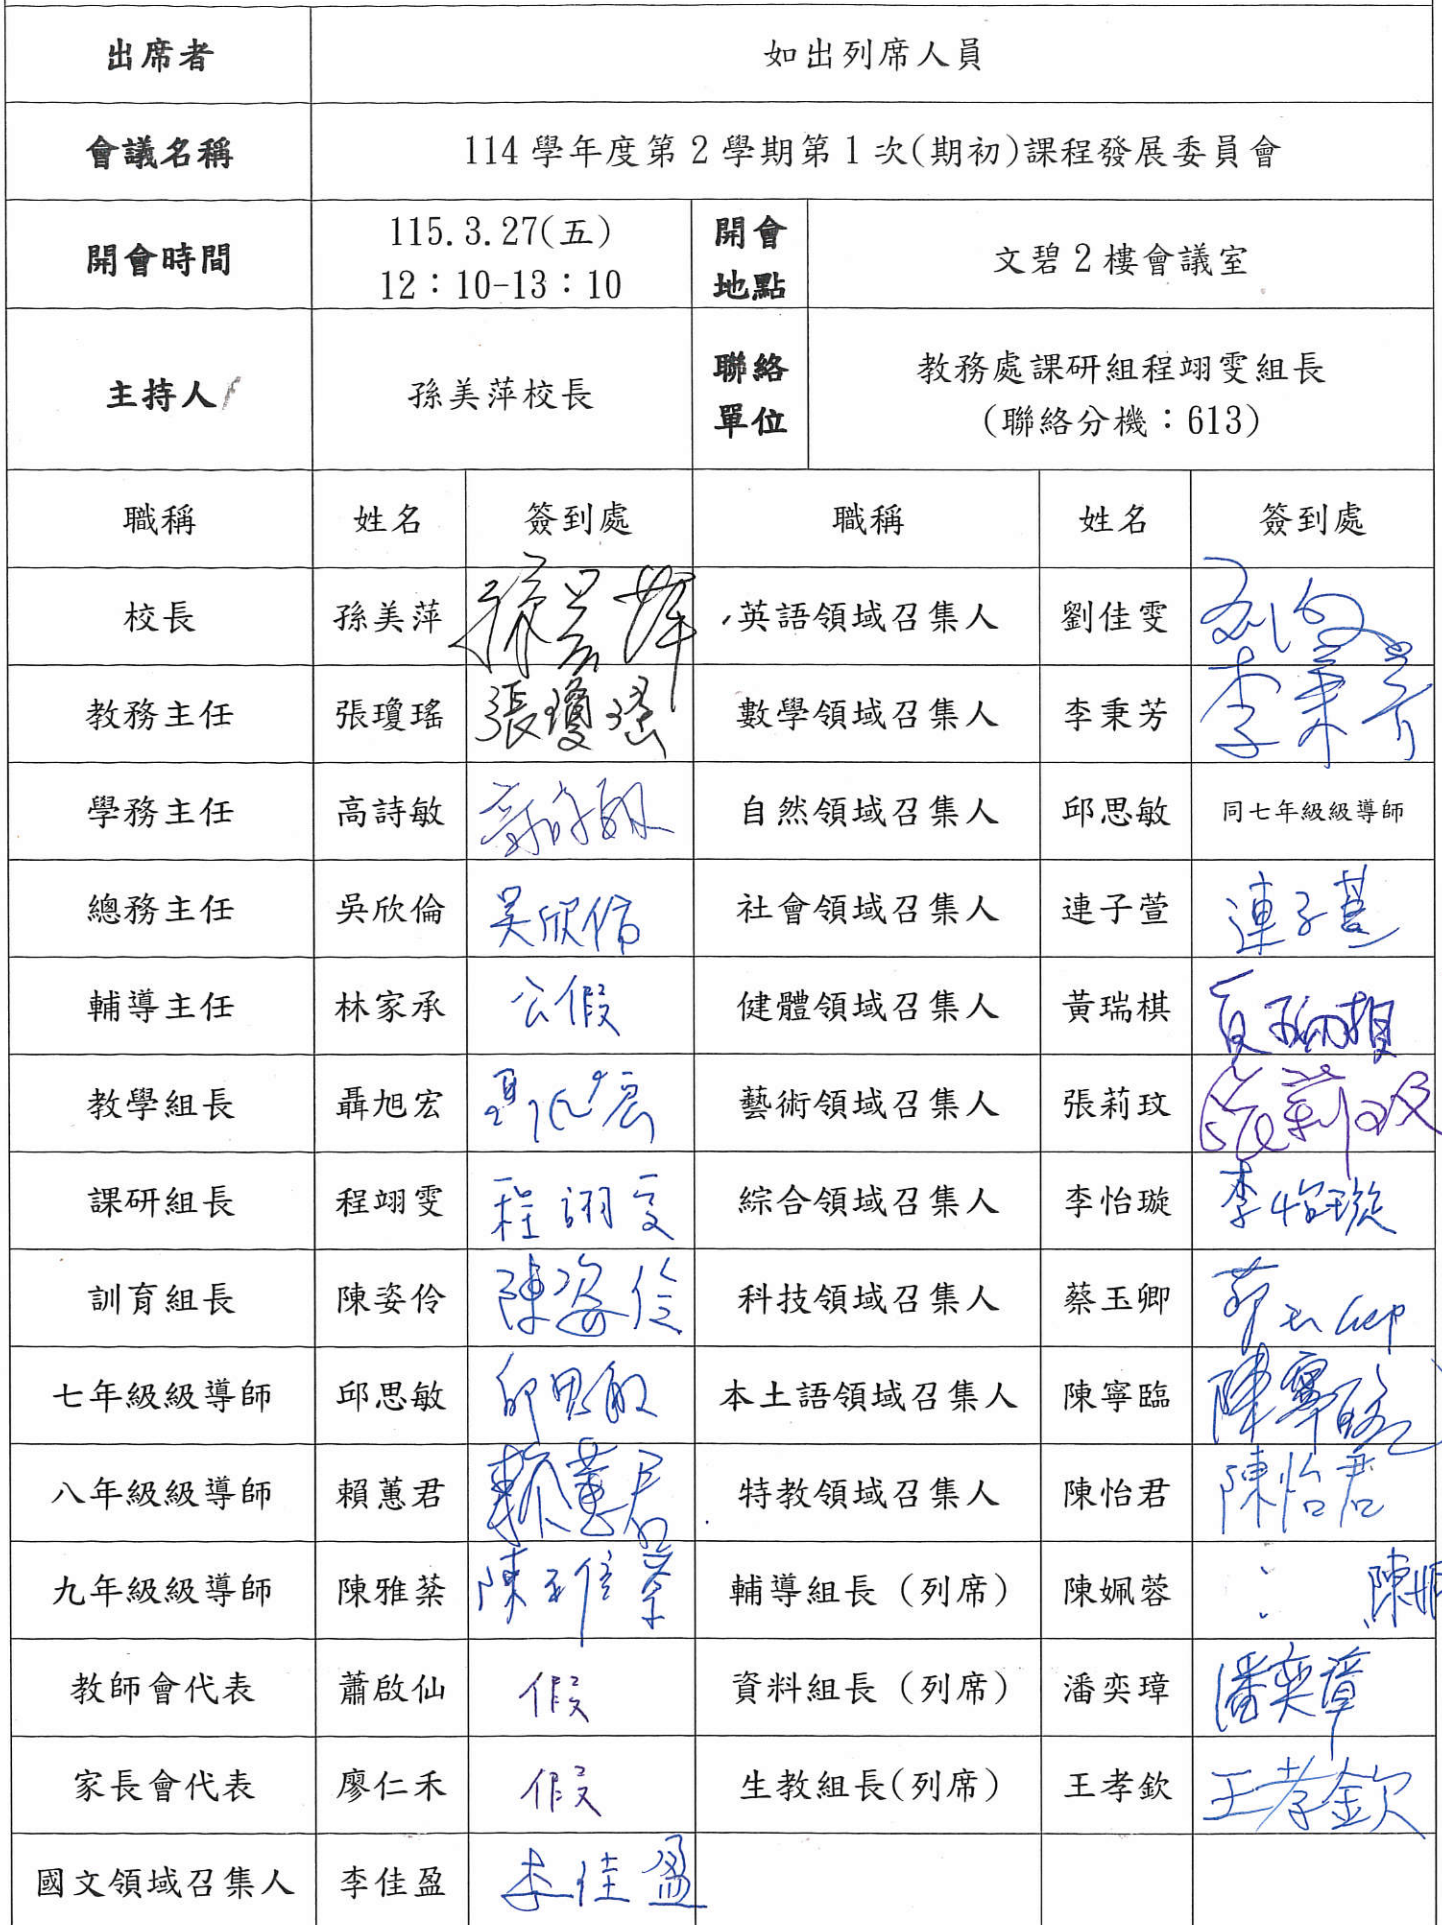 出席者 如出列席人員
會議名稱 114 學年度第 2 學期第 1 次(期初)課程發展委員會
開會時間 115.3.27(五) 12：10-13：10 開會地點 文碧 2 樓會議室
主持人 孫美萍校長 聯絡單位 教務處課研組程翊雯組長 (聯絡分機：613)
職稱 姓名 簽到處 職稱 姓名 簽到處
校長 孫美萍 孫美萍 英語領域召集人 劉佳雯
教務主任 張瓊瑤 張瓊瑤 數學領域召集人 李秉芳 李秉芳
學務主任 高詩敏 高詩敏 自然領域召集人 邱思敏 同七年級級導師
總務主任 吳欣倫 吳欣倫 社會領域召集人 連子萱 連子萱
輔導主任 林家承 公假 健體領域召集人 黃瑞棋
教學組長 聶旭宏 聶旭宏 藝術領域召集人 張莉玟 張莉玟
課研組長 程翊雯 程翊雯 綜合領域召集人 李怡璇 李怡璇
訓育組長 陳姿伶 陳姿伶 科技領域召集人 蔡玉卿 蔡玉卿
七年級級導師 邱思敏 邱思敏 本土語領域召集人 陳寧臨 陳寧臨
八年級級導師 賴蕙君 賴蕙君 特教領域召集人 陳怡君 陳怡君
九年級級導師 陳雅棻 陳雅棻 輔導組長（列席） 陳姵蓉 陳姵
教師會代表 蕭啟仙 假 資料組長（列席） 潘奕璋 潘奕璋
家長會代表 廖仁禾 假 生教組長(列席) 王孝欽 王孝欽
國文領域召集人 李佳盈 李佳盈